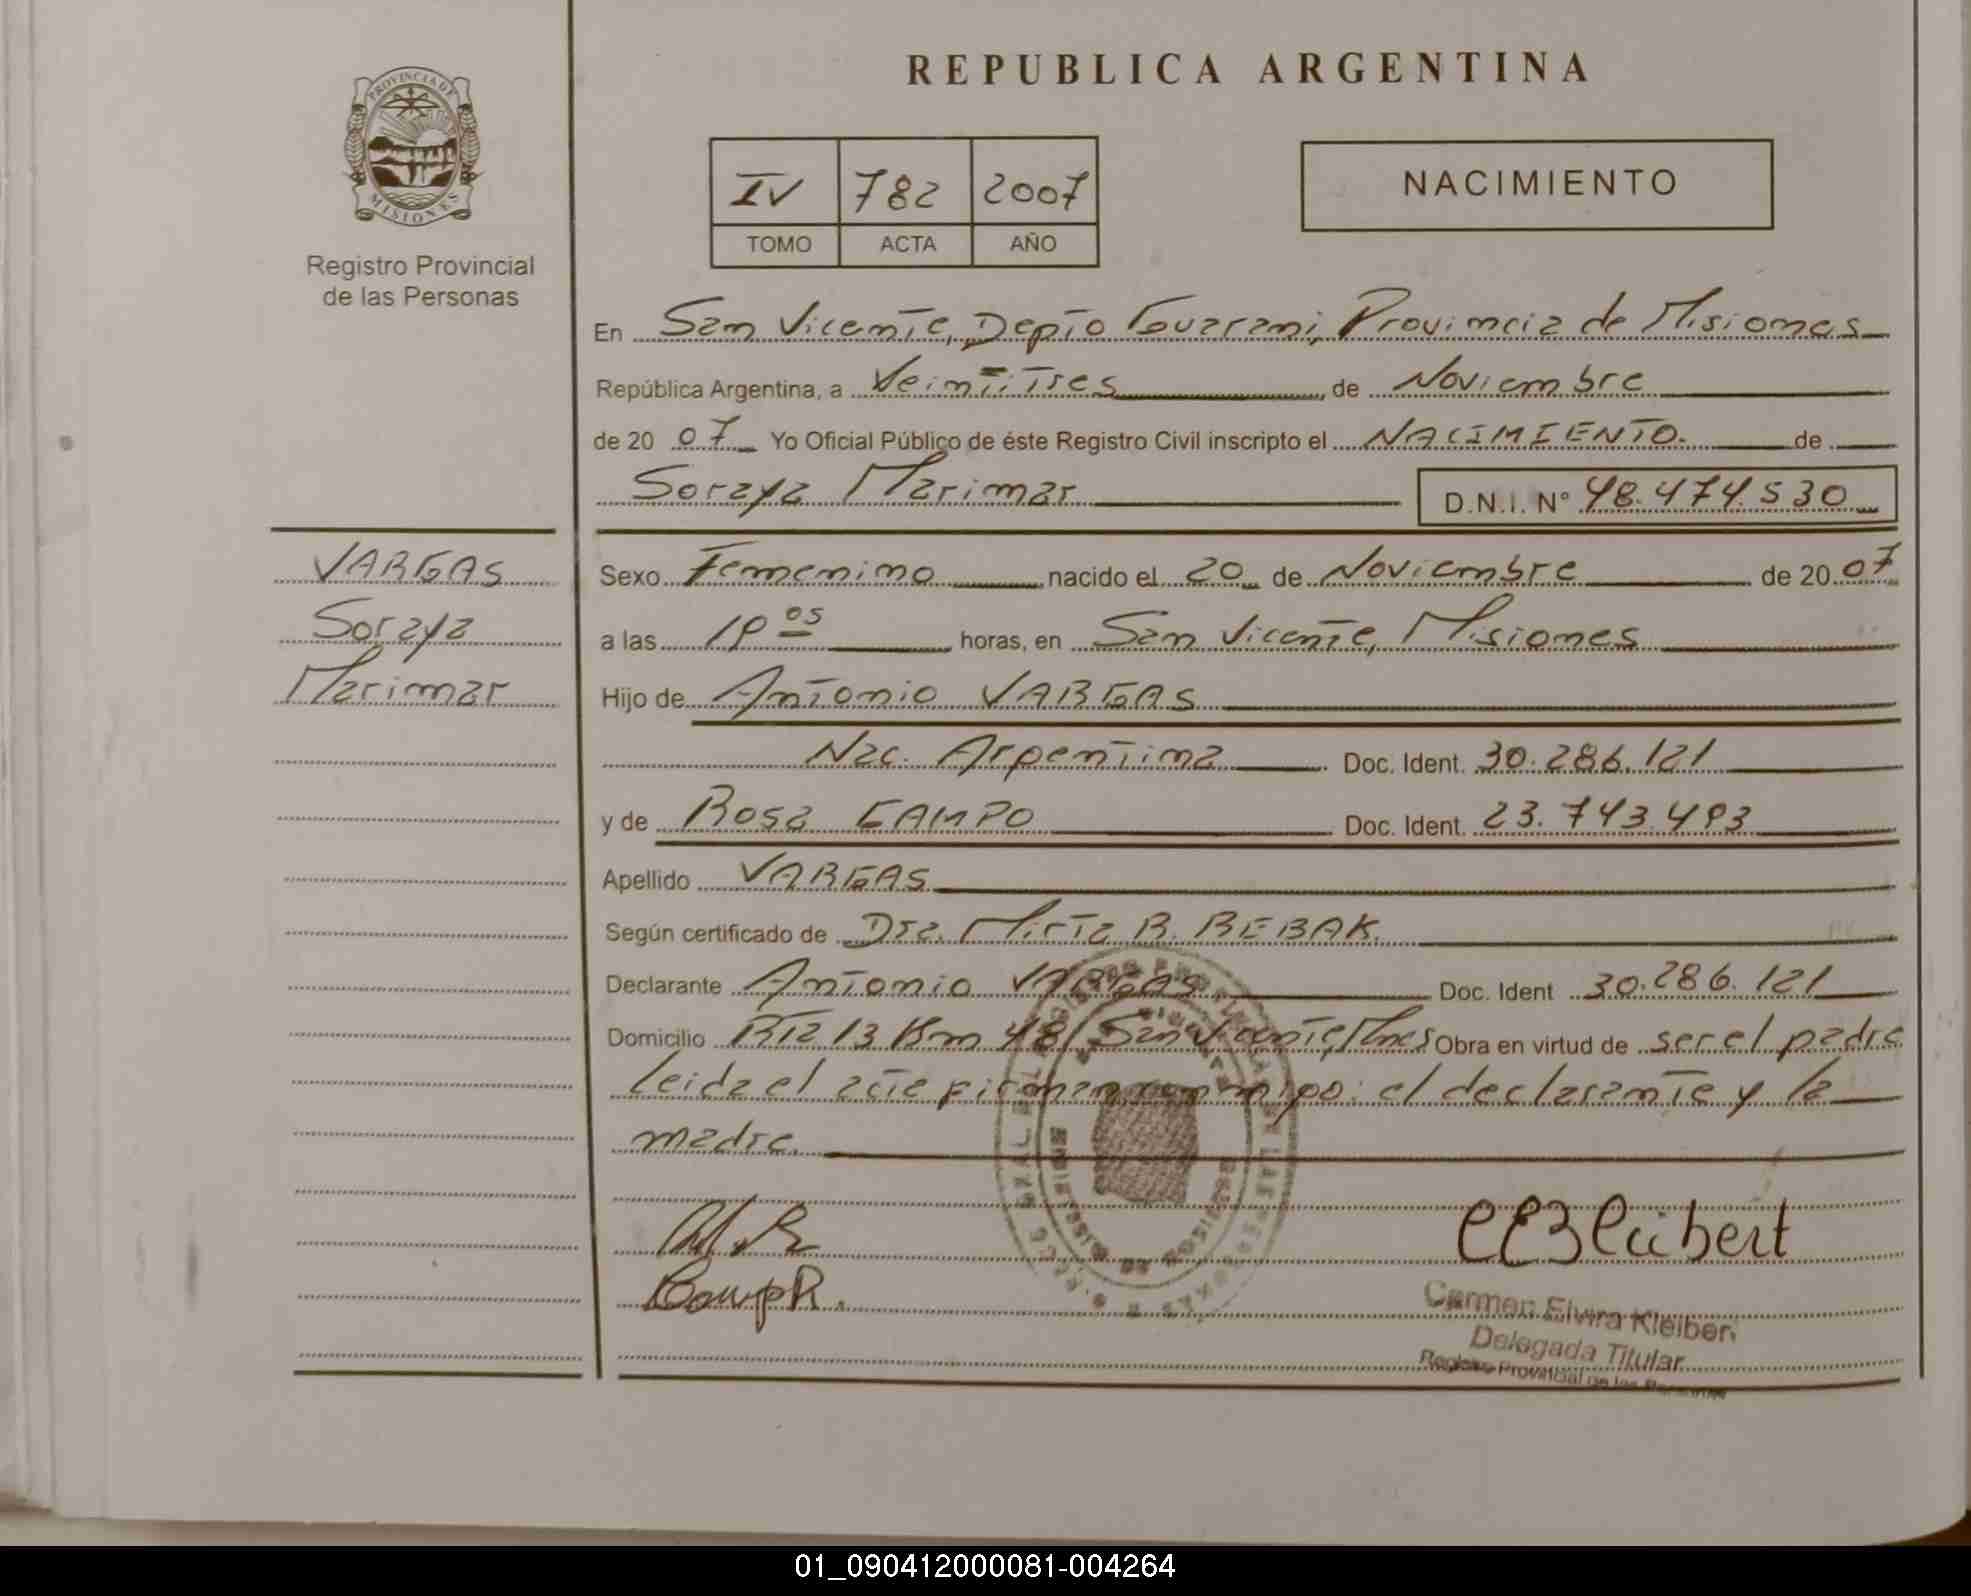 REPUBLICA ARGENTINA
PROVINCIA DE
MISIONES
Registro Provincial
de las Personas
IV 782 2007
TOMO ACTA AÑO
NACIMIENTO
En San Vicente, Depto Guarani, Provincia de Misiones
República Argentina, a Veintitres de Noviembre
de 20 07 Yo Oficial Público de éste Registro Civil inscripto el NACIMIENTO. de
Soraya Marimar D.N.I. Nº 48.474.530
VARGAS
Soraya
Marimar
Sexo Femenino nacido el 20 de Noviembre de 20 07
a las 19 05 horas, en San Vicente, Misiones
Hijo de Antonio VARGAS
Nac. Argentina Doc. Ident. 30.286.121
y de Rosa CAMPO Doc. Ident. 23.743.493
Apellido VARGAS
Según certificado de Dra. Mirta B. BEBAK.
Declarante Antonio VARGAS Doc. Ident 30.286.121
Domicilio Rta 13 Km 48, San Vicente, Mnes Obra en virtud de ser el padre
leida el acta firman conmigo: el declarante y la
madre.
Carmen Elvira Kleibert
Delegada Titular
Registro Provincial de las Personas
01_090412000081-004264